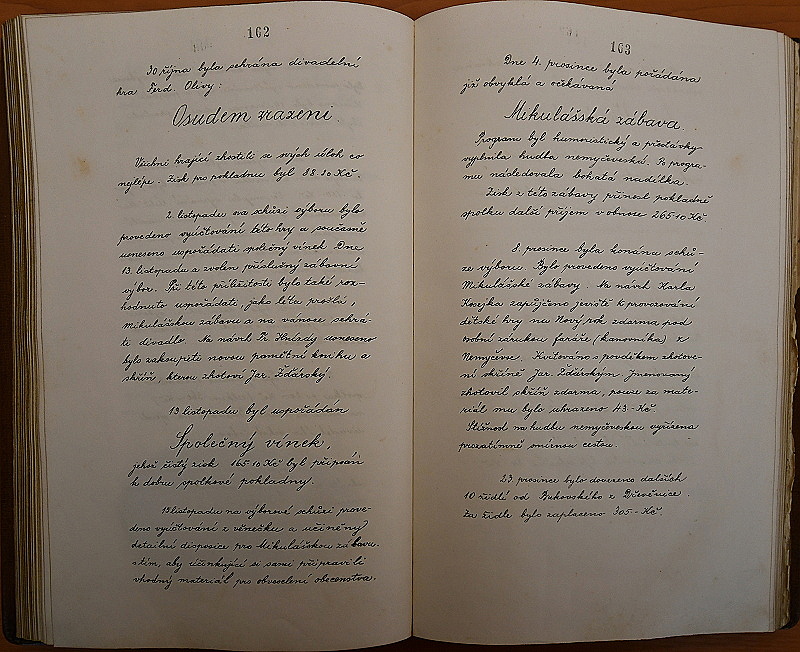 162
30 října byla sehrána divadelní
hra Ferd. Olivy:
Osudem vrazeni.
Všichni hrající zhostili se svých úloh co
nejlépe. Zisk pro pokladnu byl 88.10 Kč.
2. listopadu na schůzi výboru bylo
provedeno vyúčtování této hry a současně
usneseno uspořádati společný vínek Dne
13. listopadu a zvolen příslušný zábavní
výbor. Při této příležitosti bylo také roz-
hodnuto uspořádati, jako léta prošlá,
Mikulášskou zábavu a na vánoce sehrá-
ti divadlo. Na návrh Fr. Hnízdy usneseno
bylo zakoupiti novou pamětní knihu a
skříň, kterou zhotoví Jar. Žďárský.
13 listopadu byl uspořádán
Společný vínek,
jehož čistý zisk 165 10 Kč byl připsán
k dobru spolkové pokladny.
listopadu na výborové schůzi prove-
deno vyúčtování z věnečku a učiněny
detailní disposice pro Mikulášskou zábavu
s tím, aby účinkující si sami připravili
vhodný materiál pro obveselení obecenstva.
163
Dne 4. prosince byla pořádána
již obvyklá a očekávaná
Mikulášská zábava.
Program byl humoristický a přestávky
vyplnila hudba nemyčeveská. Po progra-
mu následovala bohatá nadílka.
Zisk z této zábavy přinesl pokladně
spolku další příjem v obnose 265 10 Kč
8. prosince byla konána schů-
ze výboru. Bylo provedeno vyúčtování
Mikulášské zábavy. Na návrh Karla
Kosejka zapůjčeno jeviště k provozování
dětské hry na Nový rok zdarma pod
osobní zárukou faráře (kanovníka) z
Nemyčevse. Kvitováno s povděkem zhotove-
ní skříně Jar. Žďárským. Jmenovaný
zhotovil skříň zdarma, pouze za mate-
riál mu bylo uhrazeno 43 - Kč
Stížnost na hudbu nemyčeveskou vyřízena
prozatímně smírnou cestou.
23. prosince bylo dovezeno dalších
10 židlí od Bukovského z
Za židle bylo zaplaceno 305 - Kč.